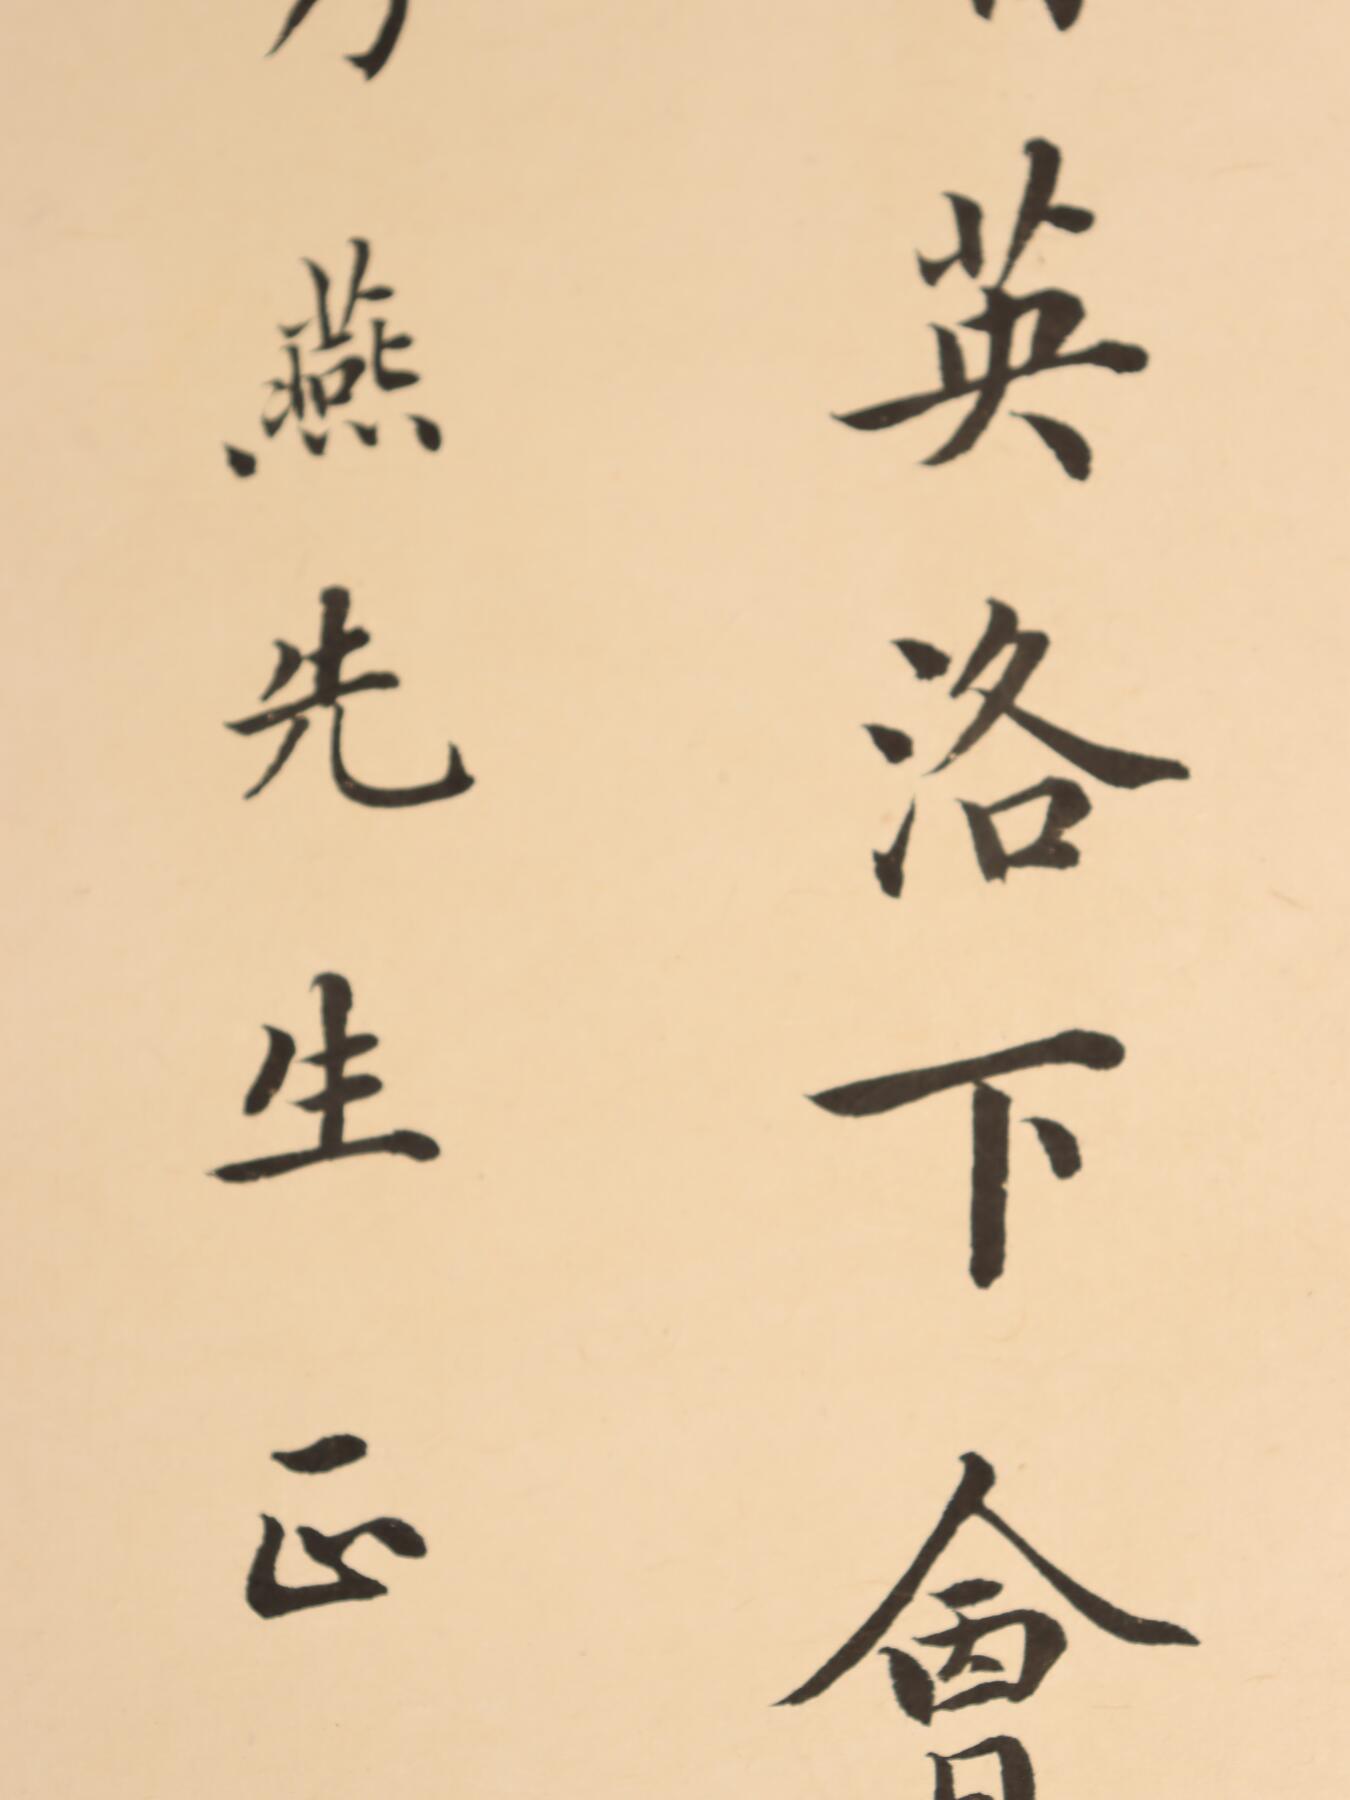 英洛下會
燕先生正